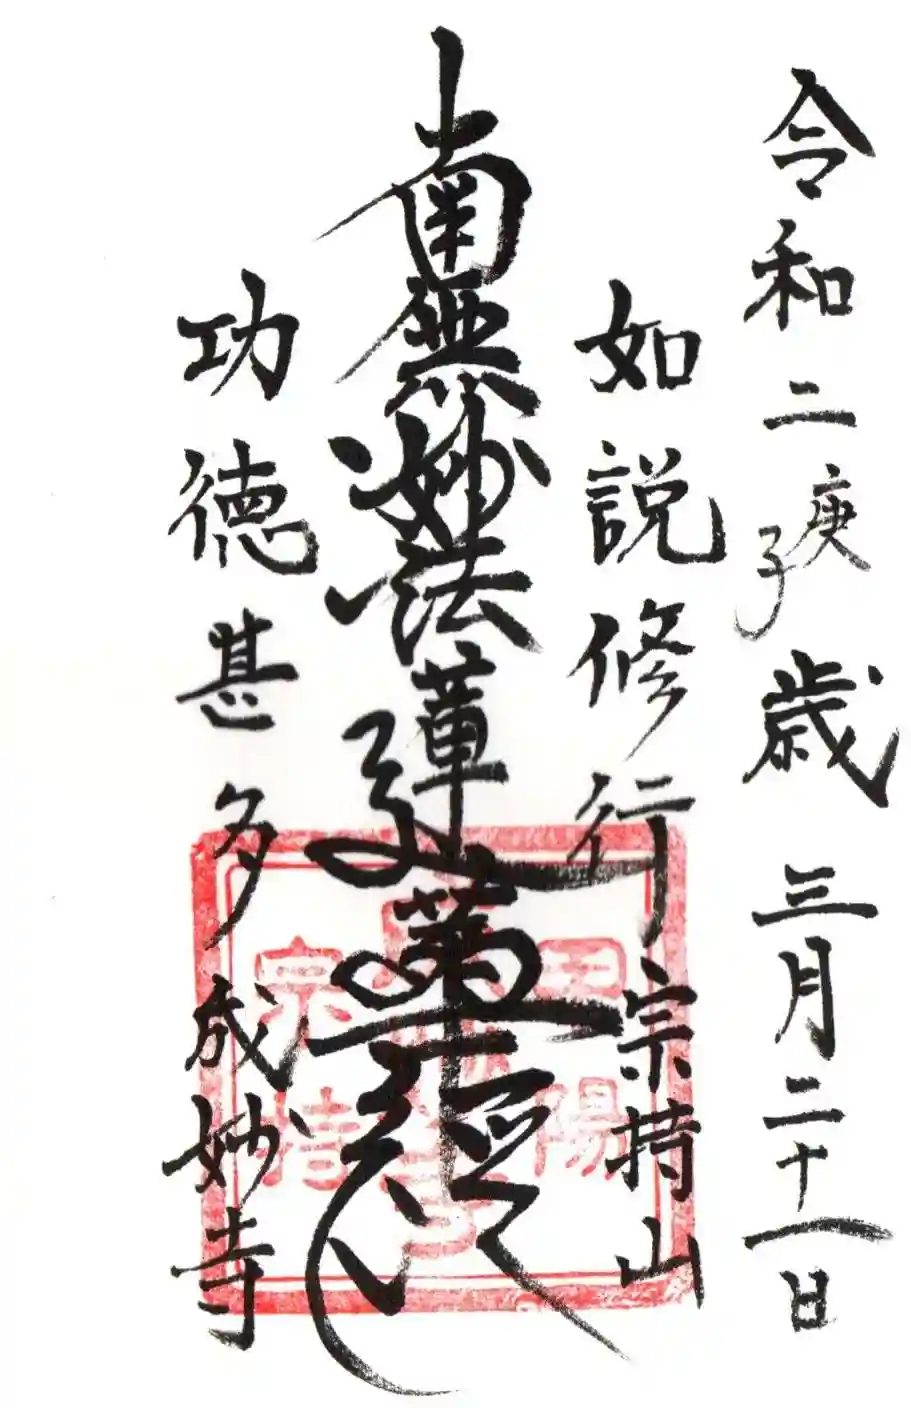 令和二庚子歳 三月二十一日
如説修行 宗持山
南無妙法蓮華経
功徳甚多 成妙寺